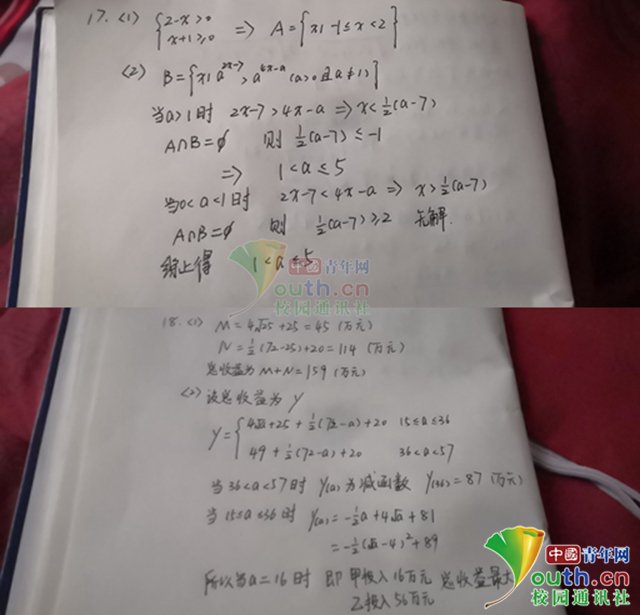 17.<1> {2-x>0 x+1≥0 => A={x|-1≤x<2}
<2) B={x|a^{2x-7}>a^{4x-a} (a>0且a≠1)}
当a>1时 2x-7>4x-a => x<½(a-7)
A∩B=∅ 则 ½(a-7)≤-1
=> 1<a≤5
当0<a<1时 2x-7<4x-a => x>½(a-7)
A∩B=∅ 则 ½(a-7)≥2 无解.
综上得 1<a≤5
中國青年网
outh.cn
校园通讯社
18.<1) M=4√25+25=45 (万元)
N=½(72-25)+20=114 (万元)
总收益为M+N=159 (万元)
<2) 设总收益为Y
Y={4√a+25+½(72-a)+20 15≤a≤36
49+½(72-a)+20 36<a<57
当36<a<57时 Y(a)为减函数 Y(36)=87 (万元)
当15≤a≤36时 Y(a)=-½a+4√a+81
=-½(√a-4)²+89
所以当a=16时 即甲投入16万元 总收益最大
乙投入56万元
中國青年网
outh.cn
校园通讯社